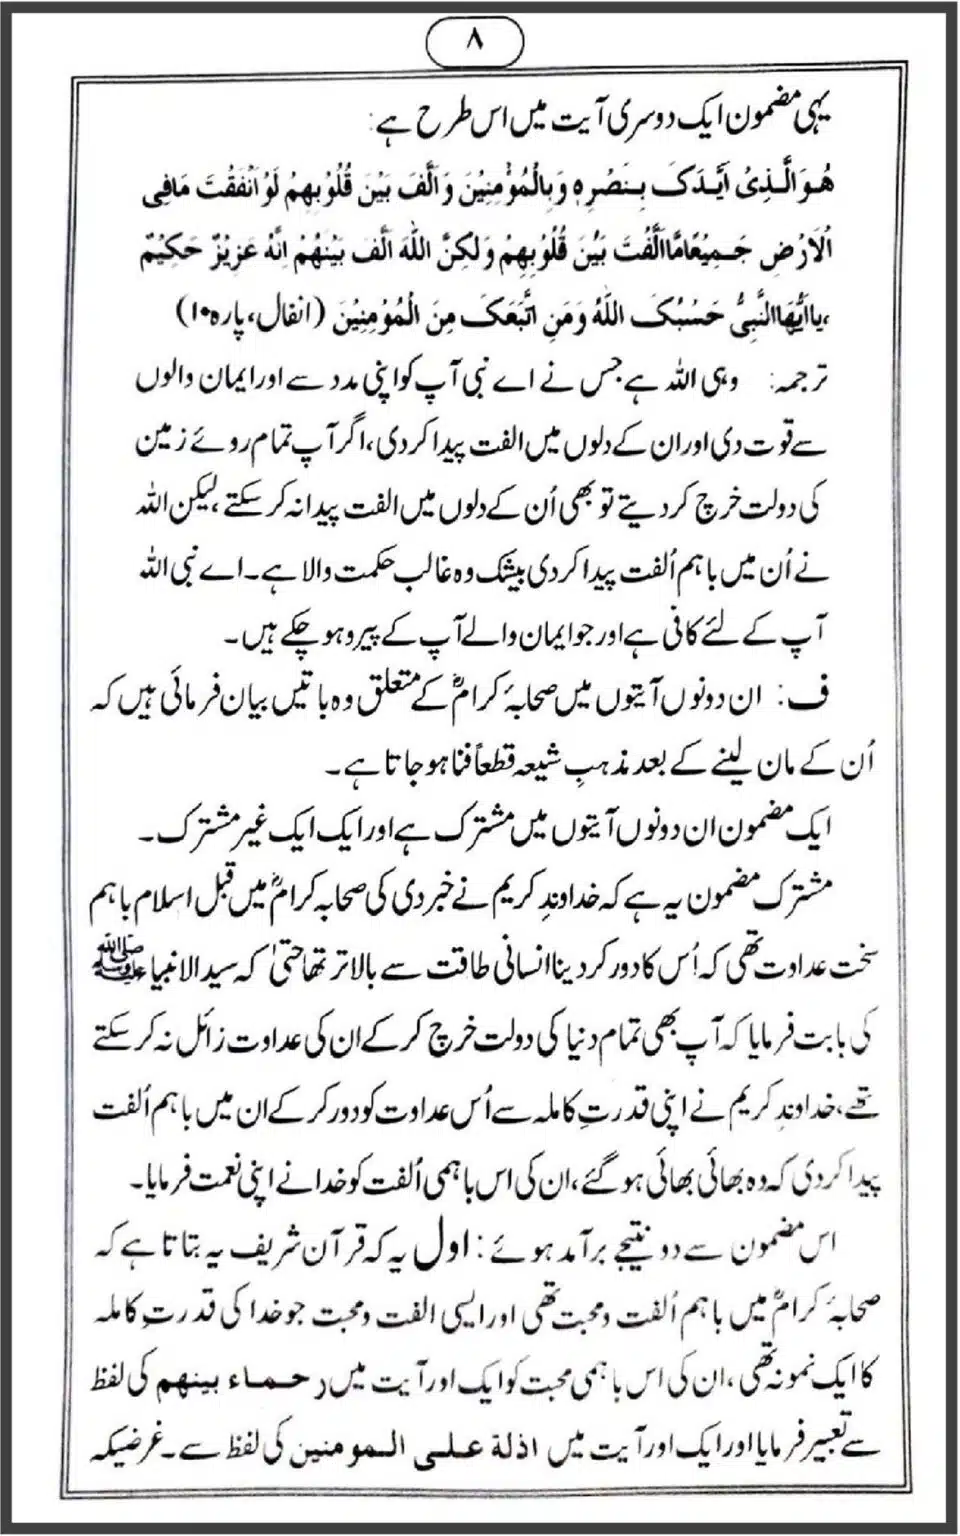 ۸
یہی مضمون ایک دوسری آیت میں اس طرح ہے:
هُوَ الَّذِیْ اَیَّدَکَ بِنَصْرِهٖ وَبِالْمُؤْمِنِیْنَ وَاَلَّفَ بَیْنَ قُلُوْبِهِمْ لَوْ اَنْفَقْتَ مَافِی
الْاَرْضِ جَمِیْعًامَّااَلَّفْتَ بَیْنَ قُلُوْبِهِمْ وَلٰکِنَّ اللّٰهَ اَلَّفَ بَیْنَهُمْ اِنَّهٗ عَزِیْزٌ حَکِیْمٌ
،یٰااَیُّهَاالنَّبِیُّ حَسْبُکَ اللّٰهُ وَمَنِ اتَّبَعَکَ مِنَ الْمُؤْمِنِیْنَ (انفال، پارہ۱۰)
ترجمہ: وہی اللہ ہے جس نے اے نبی آپ کو اپنی مدد سے اور ایمان والوں
سے قوت دی اور ان کے دلوں میں الفت پیدا کر دی، اگر آپ تمام روئے زمین
کی دولت خرچ کر دیتے تو بھی اُن کے دلوں میں الفت پیدا نہ کر سکتے، لیکن اللہ
نے اُن میں باہم اُلفت پیدا کر دی بیشک وہ غالب حکمت والا ہے۔ اے نبی اللہ
آپ کے لئے کافی ہے اور جو ایمان والے آپ کے پیرو ہو چکے ہیں۔
ف: ان دونوں آیتوں میں صحابۂ کرامؓ کے متعلق وہ باتیں بیان فرمائی ہیں کہ
اُن کے مان لینے کے بعد مذہبِ شیعہ قطعاً فنا ہو جاتا ہے۔
ایک مضمون ان دونوں آیتوں میں مشترک ہے اور ایک ایک غیر مشترک۔
مشترک مضمون یہ ہے کہ خداوندِ کریم نے خبر دی کی صحابہ کرامؓ میں قبل اسلام باہم
سخت عداوت تھی کہ اُس کا دور کر دینا انسانی طاقت سے بالاتر تھا حتیٰ کہ سید الانبیاء ﷺ
کی بابت فرمایا کہ آپ بھی تمام دنیا کی دولت خرچ کر کے ان کی عداوت زائل نہ کر سکتے
تھے، خداوندِ کریم نے اپنی قدرتِ کاملہ سے اُس عداوت کو دور کر کے ان میں باہم اُلفت
پیدا کر دی کہ وہ بھائی بھائی ہو گئے، ان کی اس باہمی اُلفت کو خدا نے اپنی نعمت فرمایا۔
اس مضمون سے دو نتیجے برآمد ہوئے: اول یہ کہ قرآن شریف یہ بتاتا ہے کہ
صحابۂ کرامؓ میں باہم اُلفت ومحبت تھی اور ایسی الفت ومحبت جو خدا کی قدرتِ کاملہ
کا ایک نمونہ تھی، ان کی اس باہمی محبت کو ایک اور آیت میں رحماء بینهم کی لفظ
سے تعبیر فرمایا اور ایک اور آیت میں اذلة علی المومنین کی لفظ سے۔ غرضیکہ